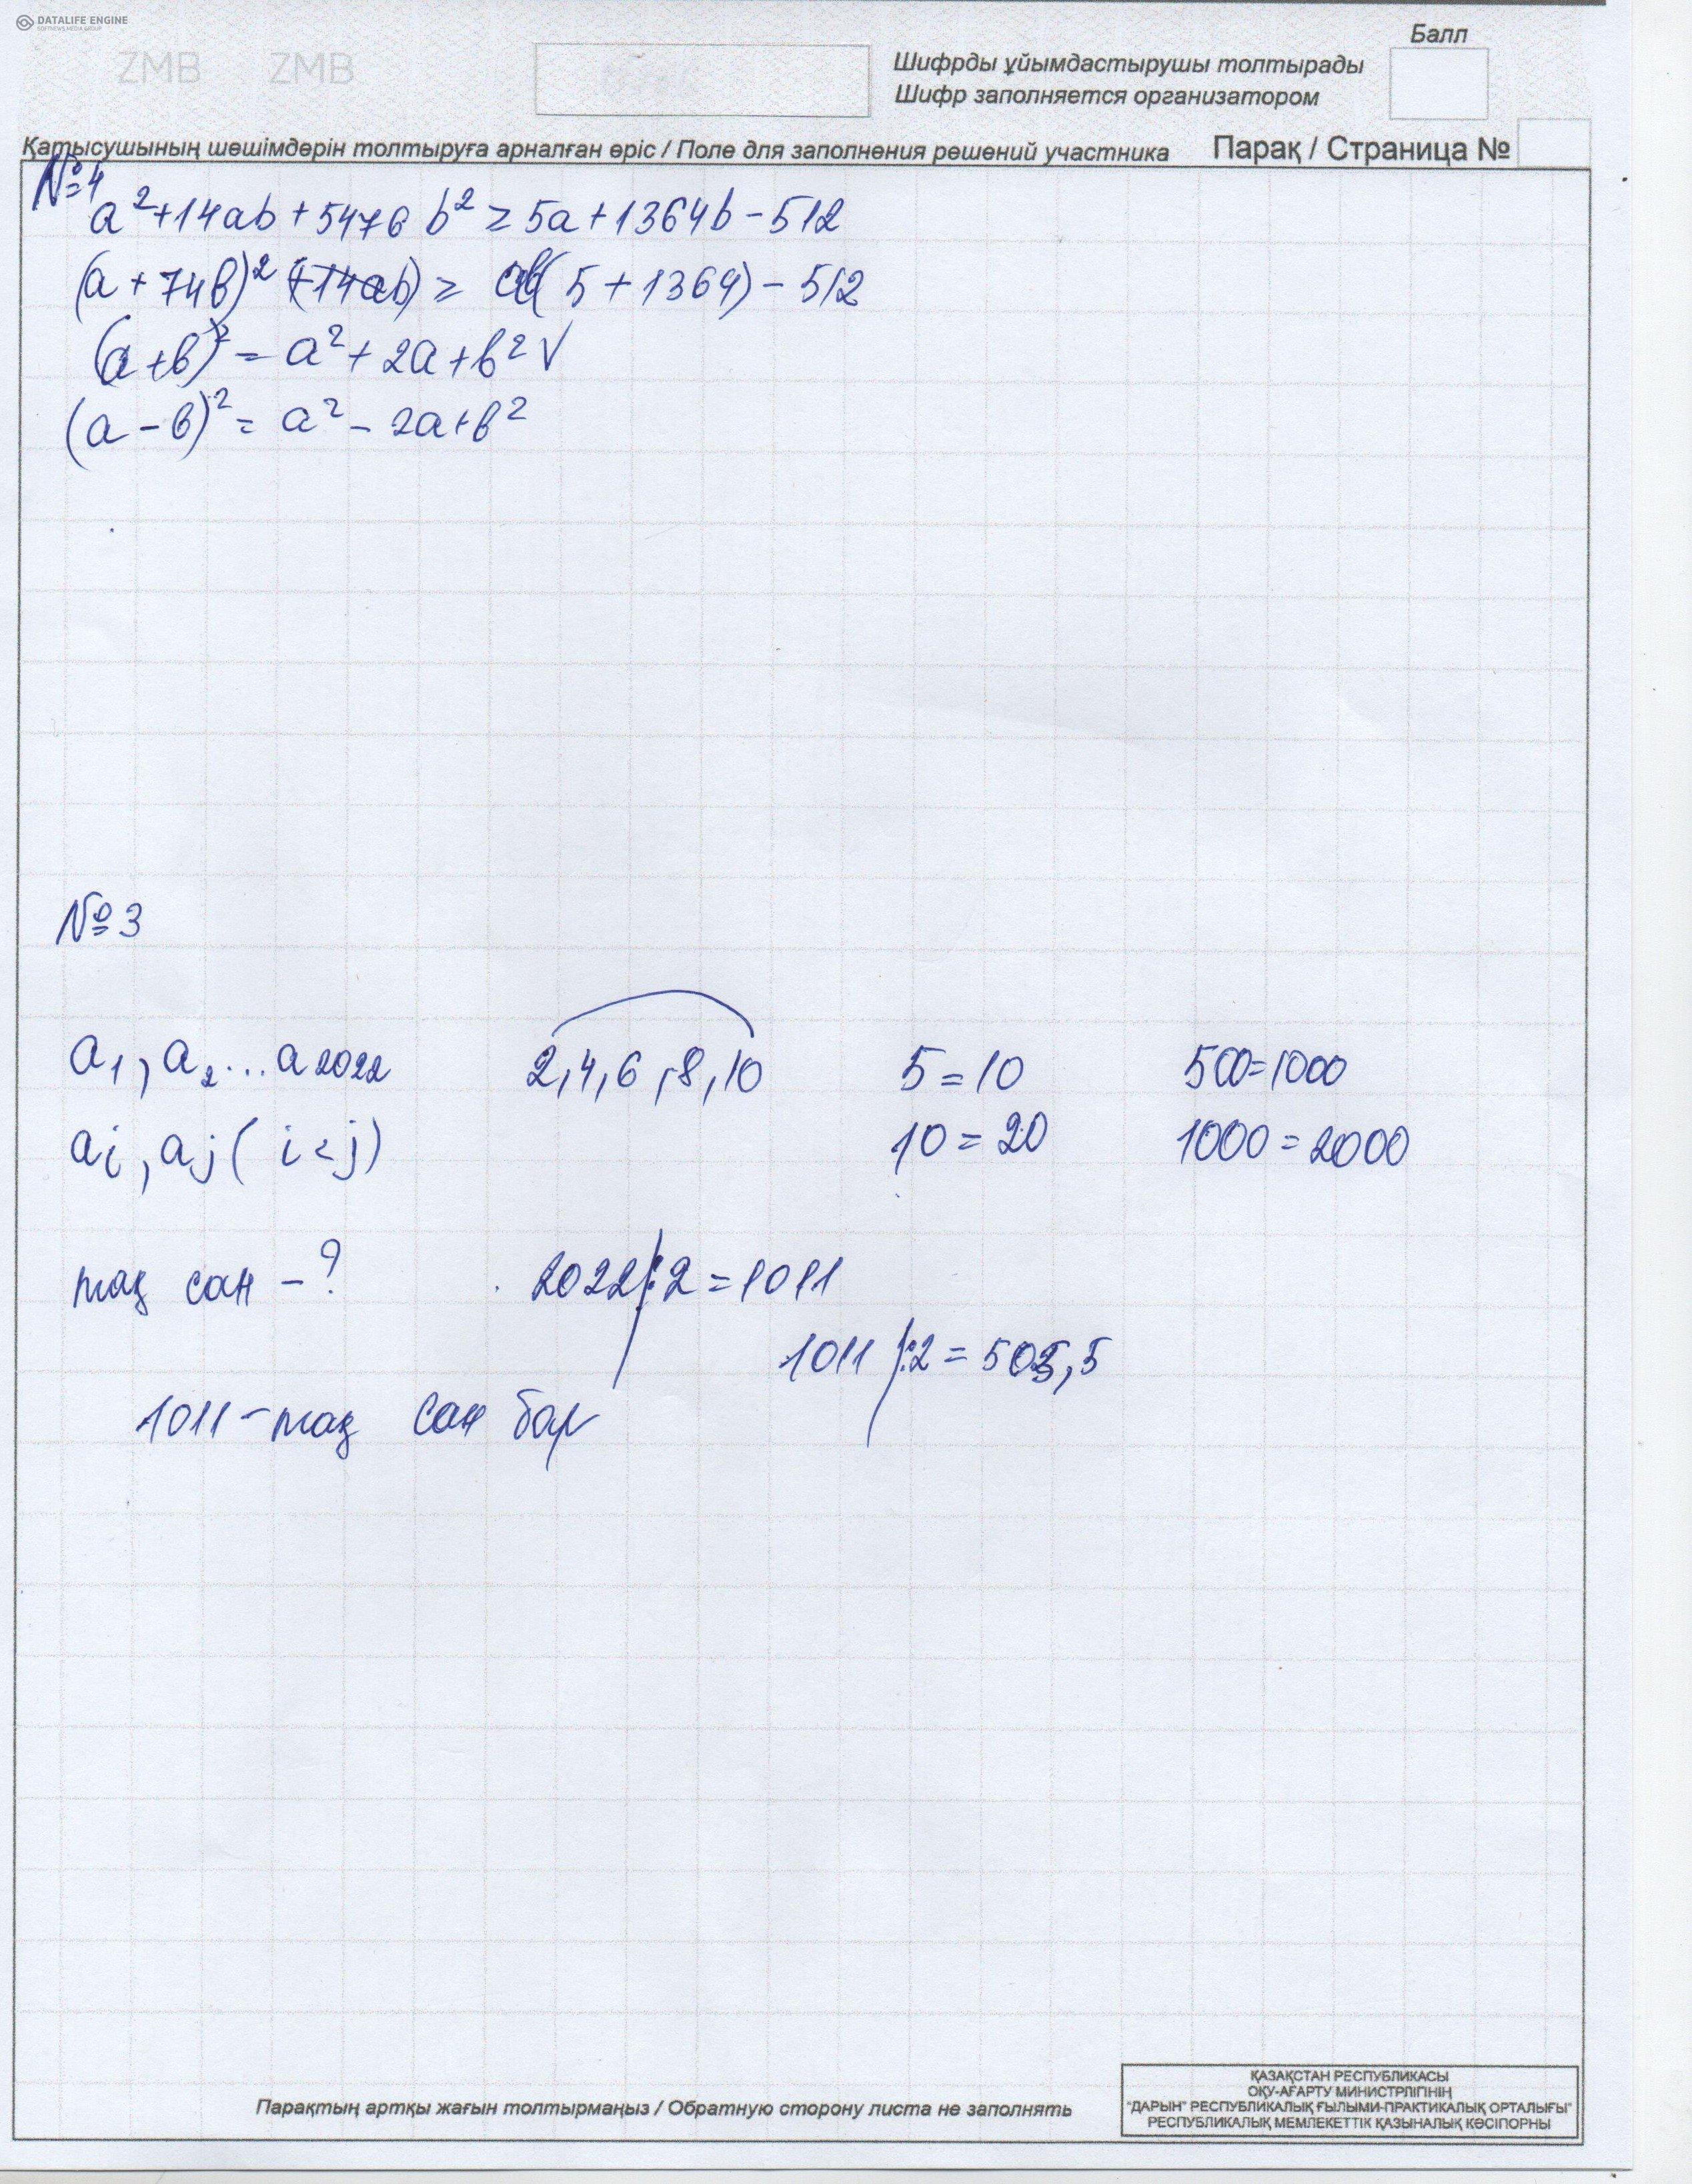 DATALIFE ENGINE
SOFTNEWS MEDIA GROUP
ZMB ZMB
Балл
Шифрды ұйымдастырушы толтырады
Шифр заполняется организатором
Қатысушының шешімдерін толтыруға арналған өріс / Поле для заполнения решений участника Парақ / Страница №
№4
a²+14ab+5476b²≥5a+1364b-512
(a+74b)² (+14ab)≥ ab(5+1364)-512
(a+b)²=a²+2a+b² √
(a-b)²=a²-2a+b²
№3
a₁, a₂...a₂₀₂₂ 2,4,6,8,10 5=10 500=1000
ai, aj (i<j) 10=20 1000=2000
тақ сан -? 2022:2=1011
1011:2=505,5
1011-тақ сан бар
Парақтың артқы жағын толтырмаңыз / Обратную сторону листа не заполнять
ҚАЗАҚСТАН РЕСПУБЛИКАСЫ
ОҚУ-АҒАРТУ МИНИСТРЛІГІНІҢ
"ДАРЫН" РЕСПУБЛИКАЛЫҚ ҒЫЛЫМИ-ПРАКТИКАЛЫҚ ОРТАЛЫҒЫ"
РЕСПУБЛИКАЛЫҚ МЕМЛЕКЕТТІК ҚАЗЫНАЛЫҚ КӘСІПОРНЫ